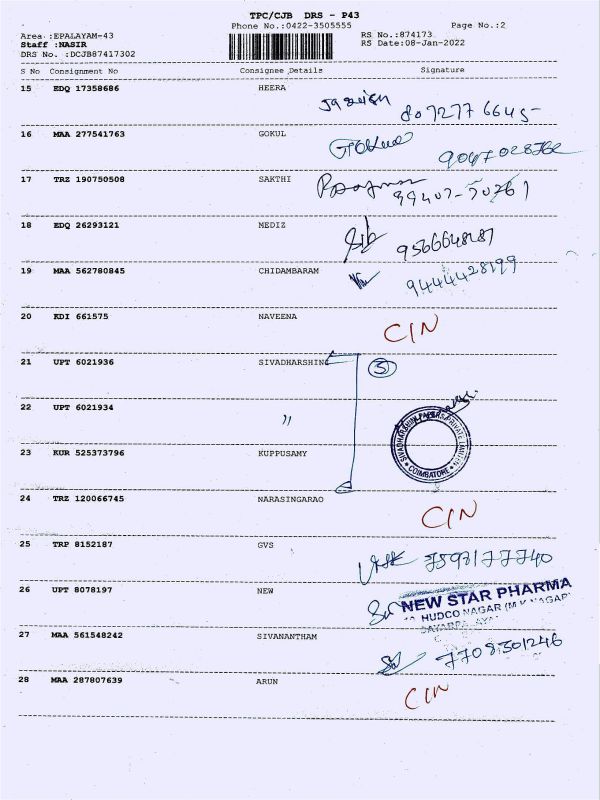 TPC/CJB DRS - P43
Phone No.:0422-3505555 Page No.:2
Area :EPALAYAM-43 RS No.:874173
Staff :NASIR RS Date:08-Jan-2022
DRS No. :DCJB87417302
S No Consignment No Consignee Details Signature
15 EDQ 17358686 HEERA
16 MAA 277541763 GOKUL
17 TRZ 190750508 SAKTHI
18 EDQ 26293121 MEDIZ 9566648187
19 MAA 562780845 CHIDAMBARAM 9444428199
20 KDI 661575 NAVEENA CIN
21 UPT 6021936 SIVADHARSHINI 5
22 UPT 6021934 "
SIVADHARSHINI PAPERS PRIVATE LIMITED COIMBATORE
23 KUR 525373796 KUPPUSAMY
24 TRZ 120066745 NARASINGARAO CIN
25 TRP 8152187 GVS 7593177740
26 UPT 8078197 NEW
NEW STAR PHARMA
HUDCO NAGAR (M K NAGAR
27 MAA 561548242 SIVANANTHAM 7708301246
28 MAA 287807639 ARUN CIN